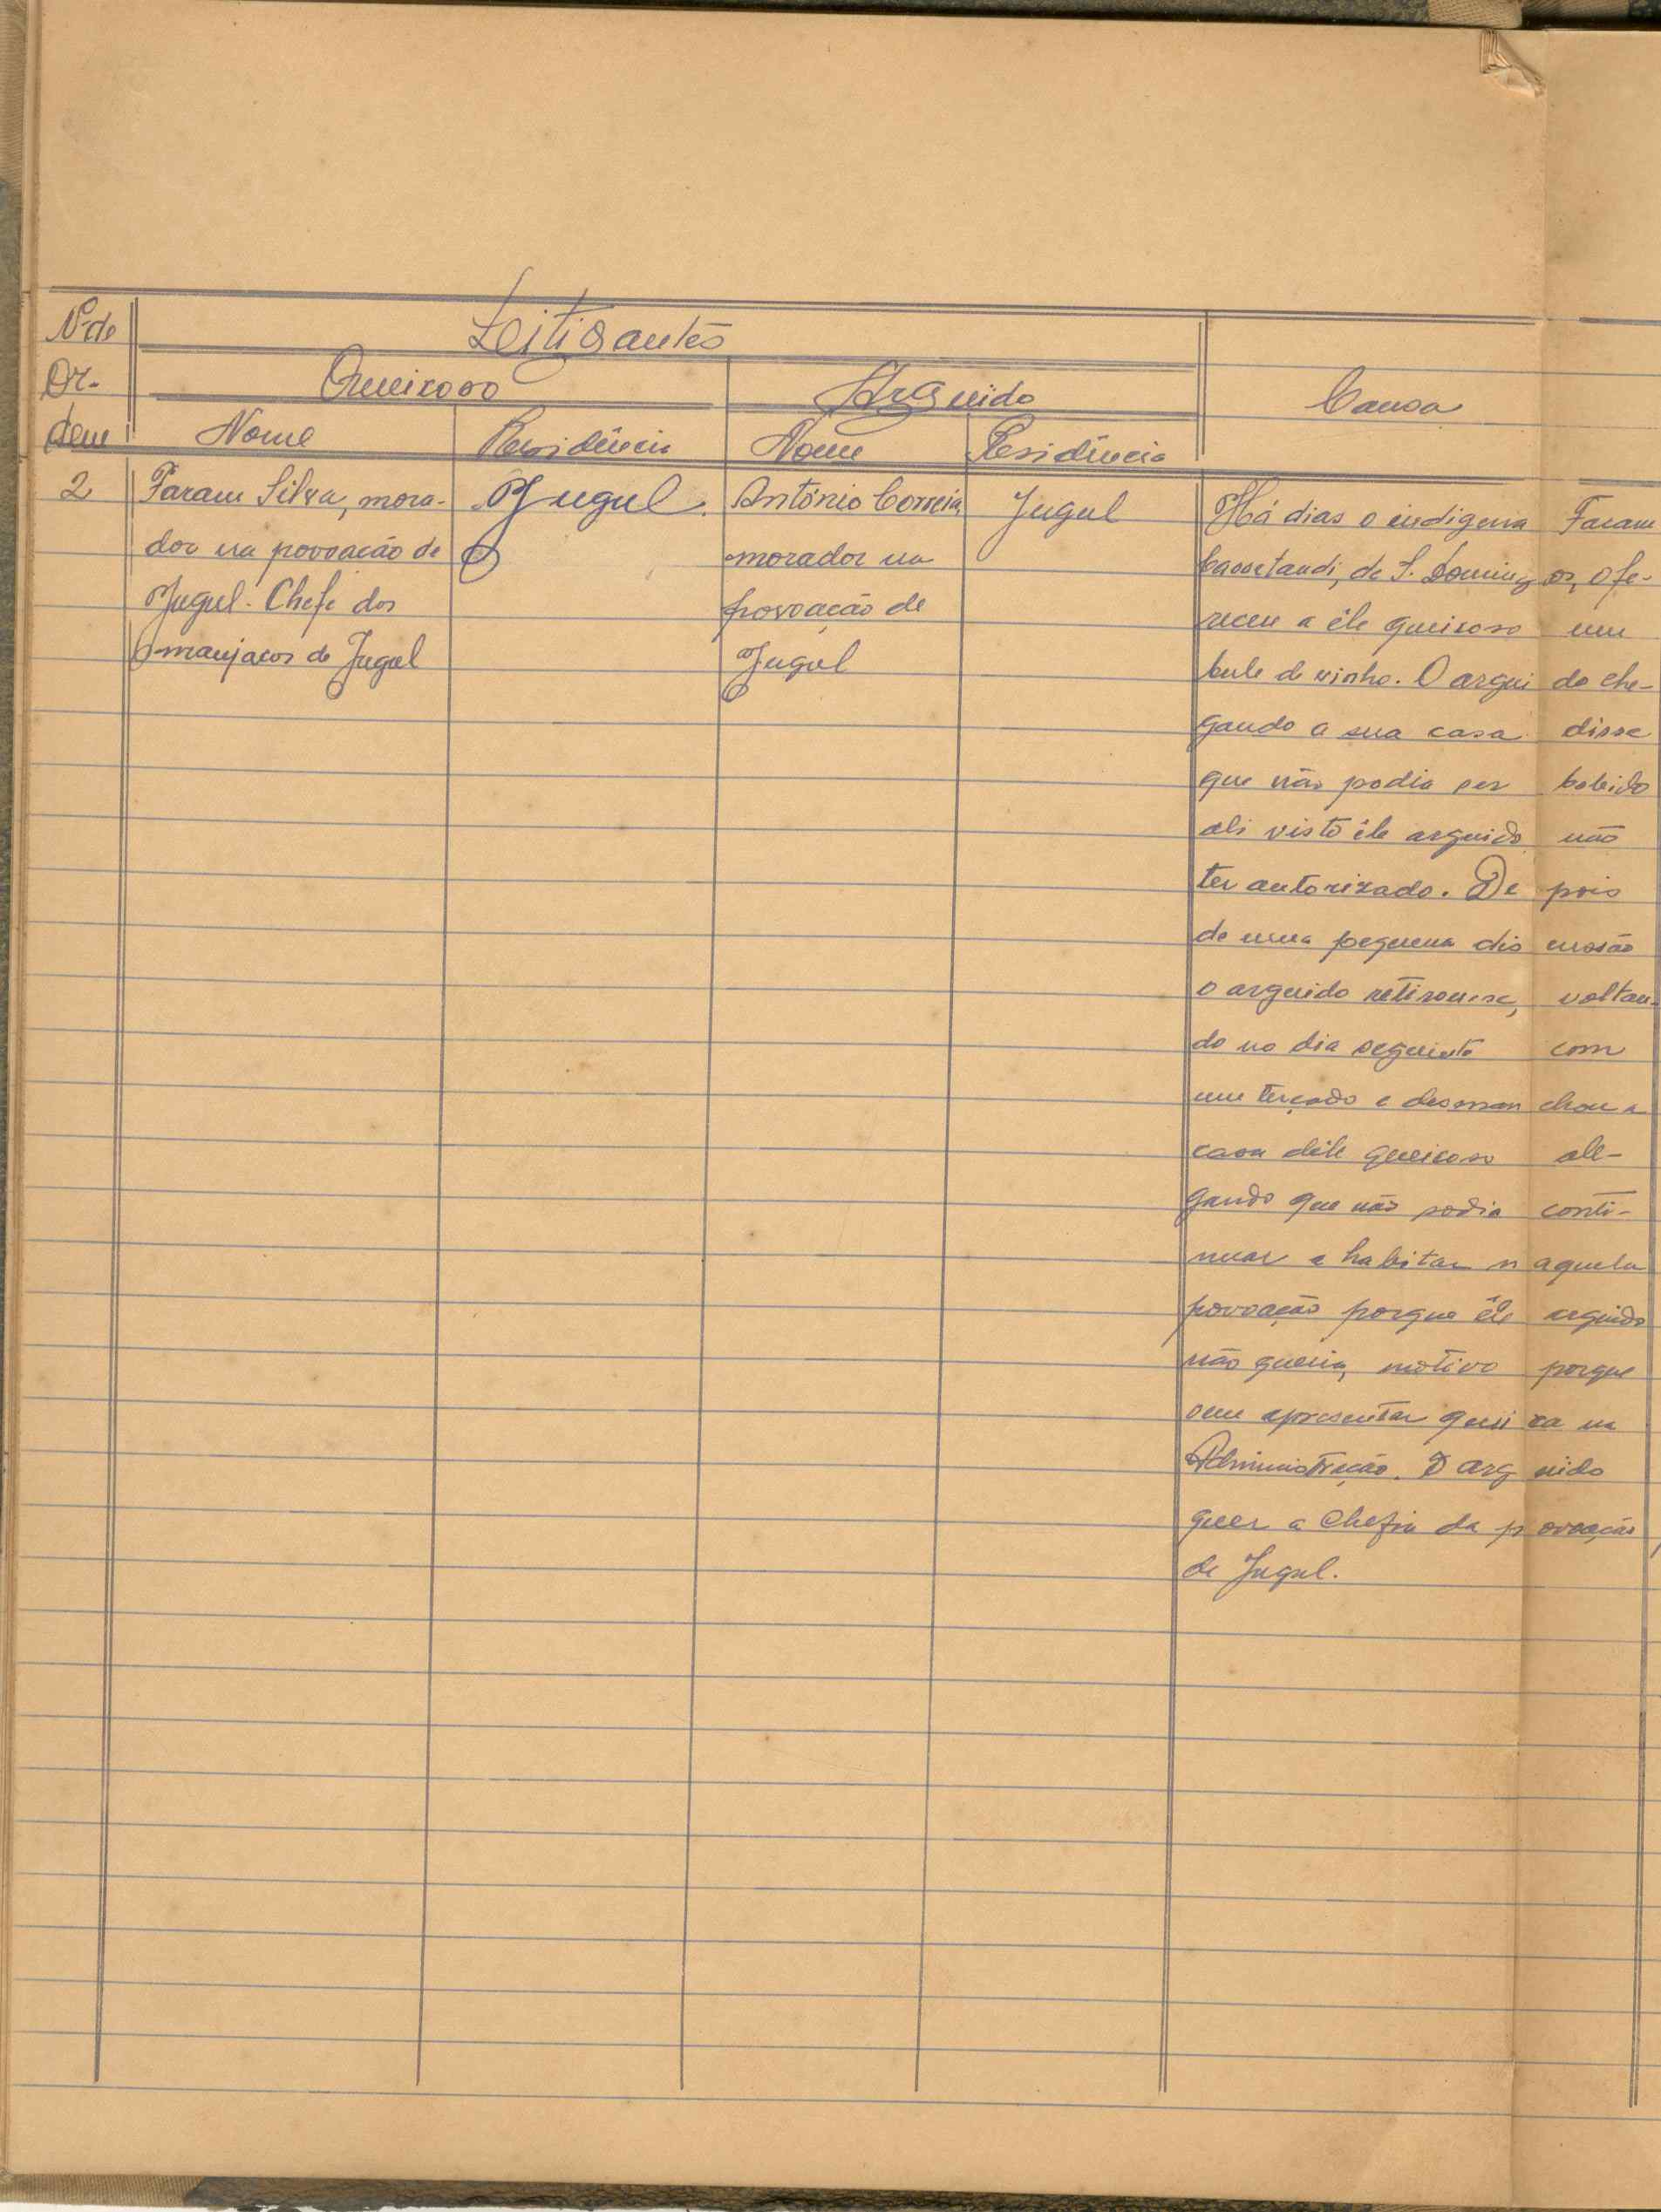 Nº de
Or-
dem
Leitigantes
Queixoso
Arguido
Causa
Nome
Residência
Nome
Residência
2
Faram Silva, mora-
dor na povoação de
Jugul. Chefe dos
manjacos de Jugul
Jugul.
António Correia,
morador na
povoação de
Jugul
Jugul
Há dias o indígena Faram
Cassetandi, de S. Domingos, ofe-
receu a êle queixoso um
bule de vinho. O arguido che-
gando a sua casa disse
que não podia ser bebido
ali visto êle arguido não
ter autorizado. Depois
de uma pequena discussão
o arguido retirou-se, voltan-
do no dia seguinte com
um terçado e desmanchou a
casa dêle queixoso ale-
gando que não podia conti-
nuar a habitar naquela
povoação porque êle arguido
não queria, motivo porque
vem apresentar queixa na
Administração. O arguido
quer a Chefia da povoação
de Jugul.